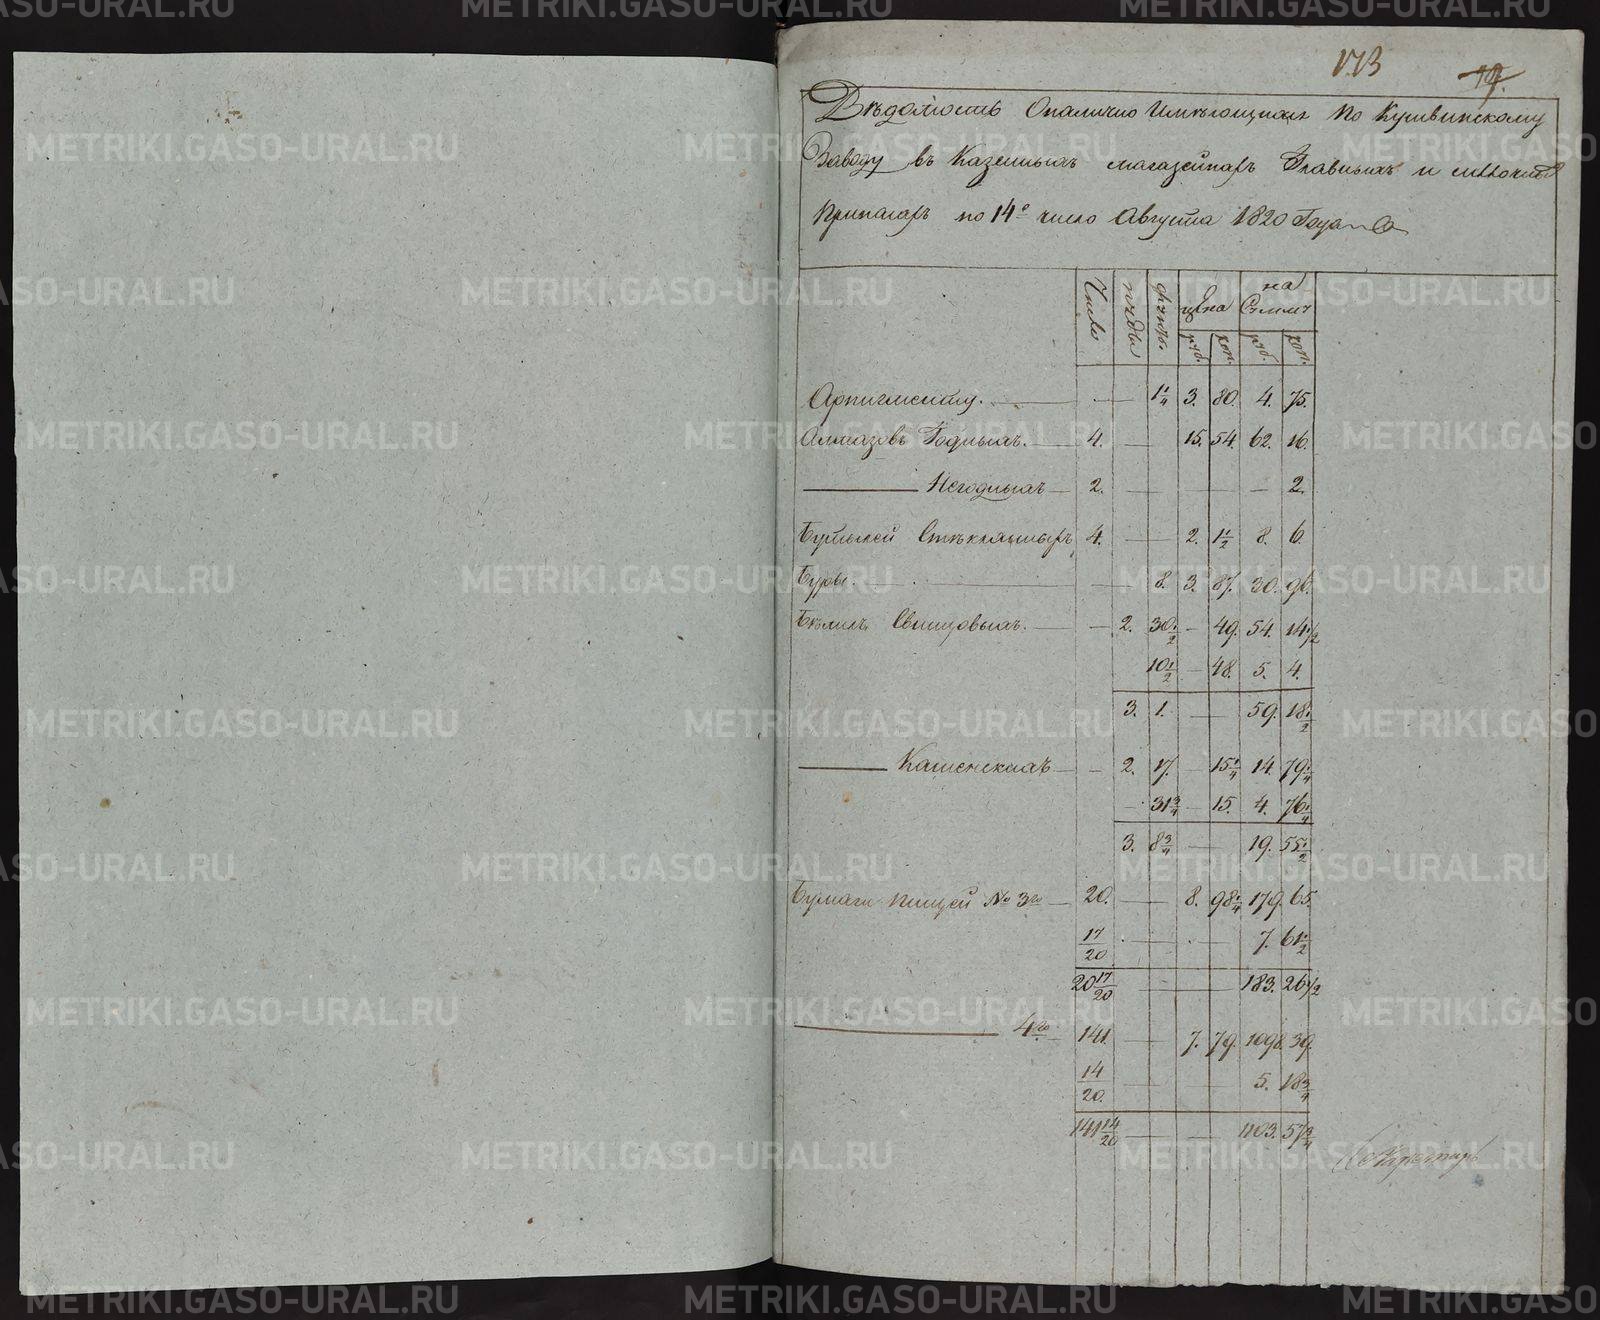 173
79.
Вѣдомость Оналично Имѣющихся По Кушвинскому
Заводу въ Казенныхъ магазейнахъ Главныхъ и мѣлочныхъ
Припасахъ по 14е число Августа 1820 Года
Число пуды фунты. цѣна на Сумму
руб. коп. руб. коп.
Арпигменту. — — 1 1/4 3. 80. 4. 75.
Алмазовъ Годныхъ. — 4. — 15. 54. 62. 16.
— Негодныхъ — 2. — — — — 2.
Бутылей Стѣклянныхъ 4. — 2. 1 1/2 8. 6.
Буры. — — 8. 3. 87. 30. 96.
Бѣлилъ Свинцовыхъ. — — 2. 30 1/2 — 49. 54. 14 1/2
10 1/2 — 48. 5. 4.
3. 1. — — 59. 18 1/2
— Кашенскихъ — — 2. 17. — 15 1/4 14. 79 1/4
— 31 3/4 — 15. 4. 76 1/4
3. 8 3/4 — 19. 55 1/2
Бумаги пищей № 3го — 20. — — 8. 98 1/4 179. 65.
17/20 — — — 7. 61 1/2
20 17/20 — — — 183. 26 1/2
— 4го — 141. — — 7. 79. 1098. 39.
14/20. — — — 5. 18 3/4
141 14/20 — — 1103. 57 3/4
METRIKI.GASO-URAL.RU